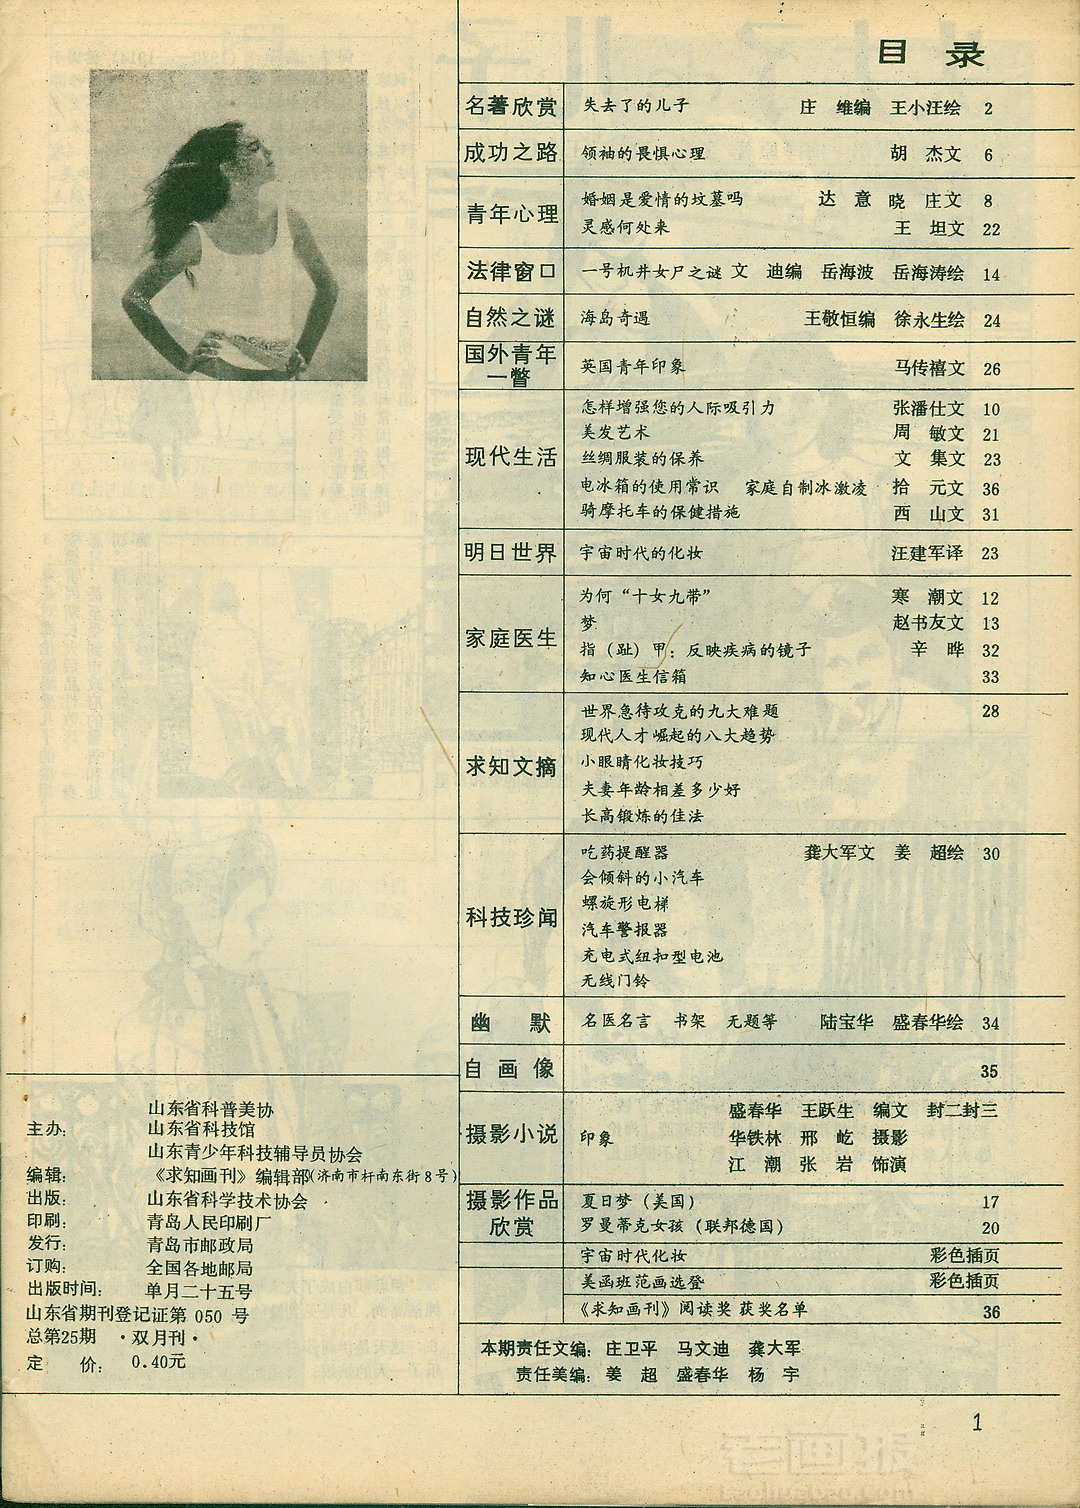 目 录
名著欣赏 失去了的儿子 庄 维编 王小汪绘 2
成功之路 领袖的畏惧心理 胡 杰文 6
青年心理 婚姻是爱情的坟墓吗 达 意 晓 庄文 8
灵感何处来 王 坦文 22
法律窗口 一号机井女尸之谜 文 迪编 岳海波 岳海涛绘 14
自然之谜 海岛奇遇 王敬恒编 徐永生绘 24
国外青年
一瞥 英国青年印象 马传禧文 26
现代生活 怎样增强您的人际吸引力 张潘仕文 10
美发艺术 周 敏文 21
丝绸服装的保养 文 集文 23
电冰箱的使用常识 家庭自制冰激凌 拾 元文 36
骑摩托车的保健措施 西 山文 31
明日世界 宇宙时代的化妆 汪建军译 23
家庭医生 为何“十女九带” 寒 潮文 12
梦 赵书友文 13
指（趾）甲：反映疾病的镜子 辛 晔 32
知心医生信箱 33
求知文摘 世界急待攻克的九大难题 28
现代人才崛起的八大趋势
小眼睛化妆技巧
夫妻年龄相差多少好
长高锻炼的佳法
科技珍闻 吃药提醒器 龚大军文 姜 超绘 30
会倾斜的小汽车
螺旋形电梯
汽车警报器
充电式纽扣型电池
无线门铃
幽 默 名医名言 书架 无题等 陆宝华 盛春华绘 34
自 画 像 35
摄影小说 印象 盛春华 王跃生 编文 封二封三
华铁林 邢 屹 摄影
江 潮 张 岩 饰演
摄影作品
欣赏 夏日梦（美国） 17
罗曼蒂克女孩（联邦德国） 20
宇宙时代化妆 彩色插页
美函班范画选登 彩色插页
《求知画刊》阅读奖 获奖名单 36
本期责任文编：庄卫平 马文迪 龚大军
责任美编：姜 超 盛春华 杨 宇
山东省科普美协
主办： 山东省科技馆
山东青少年科技辅导员协会
编辑： 《求知画刊》编辑部(济南市杆南东街8号)
出版： 山东省科学技术协会
印刷： 青岛人民印刷厂
发行： 青岛市邮政局
订购： 全国各地邮局
出版时间： 单月二十五号
山东省期刊登记证第 050 号
总第25期 ·双月刊·
定 价： 0.40元
1